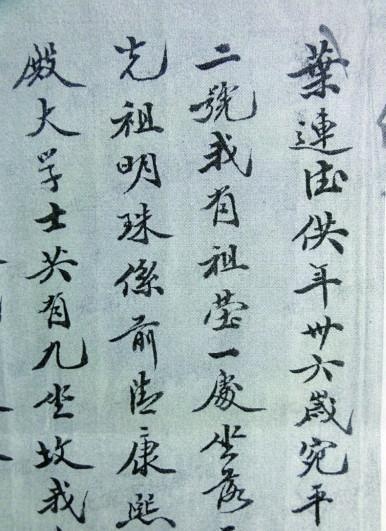 葉連德供年卅六歲宛平
二號我有祖塋一處坐落
先祖明珠係前清康熙
殿大学士共有九坐坟我